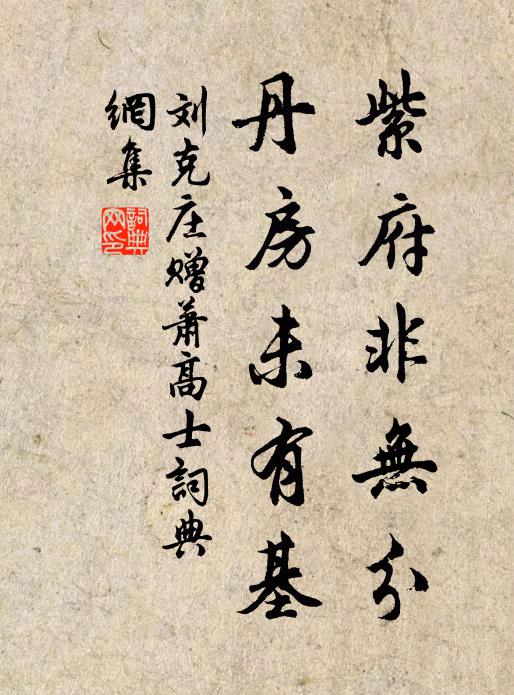 紫府非無分
丹房未有基
刘克庄赠萧高士詞典
網集
詞典网印